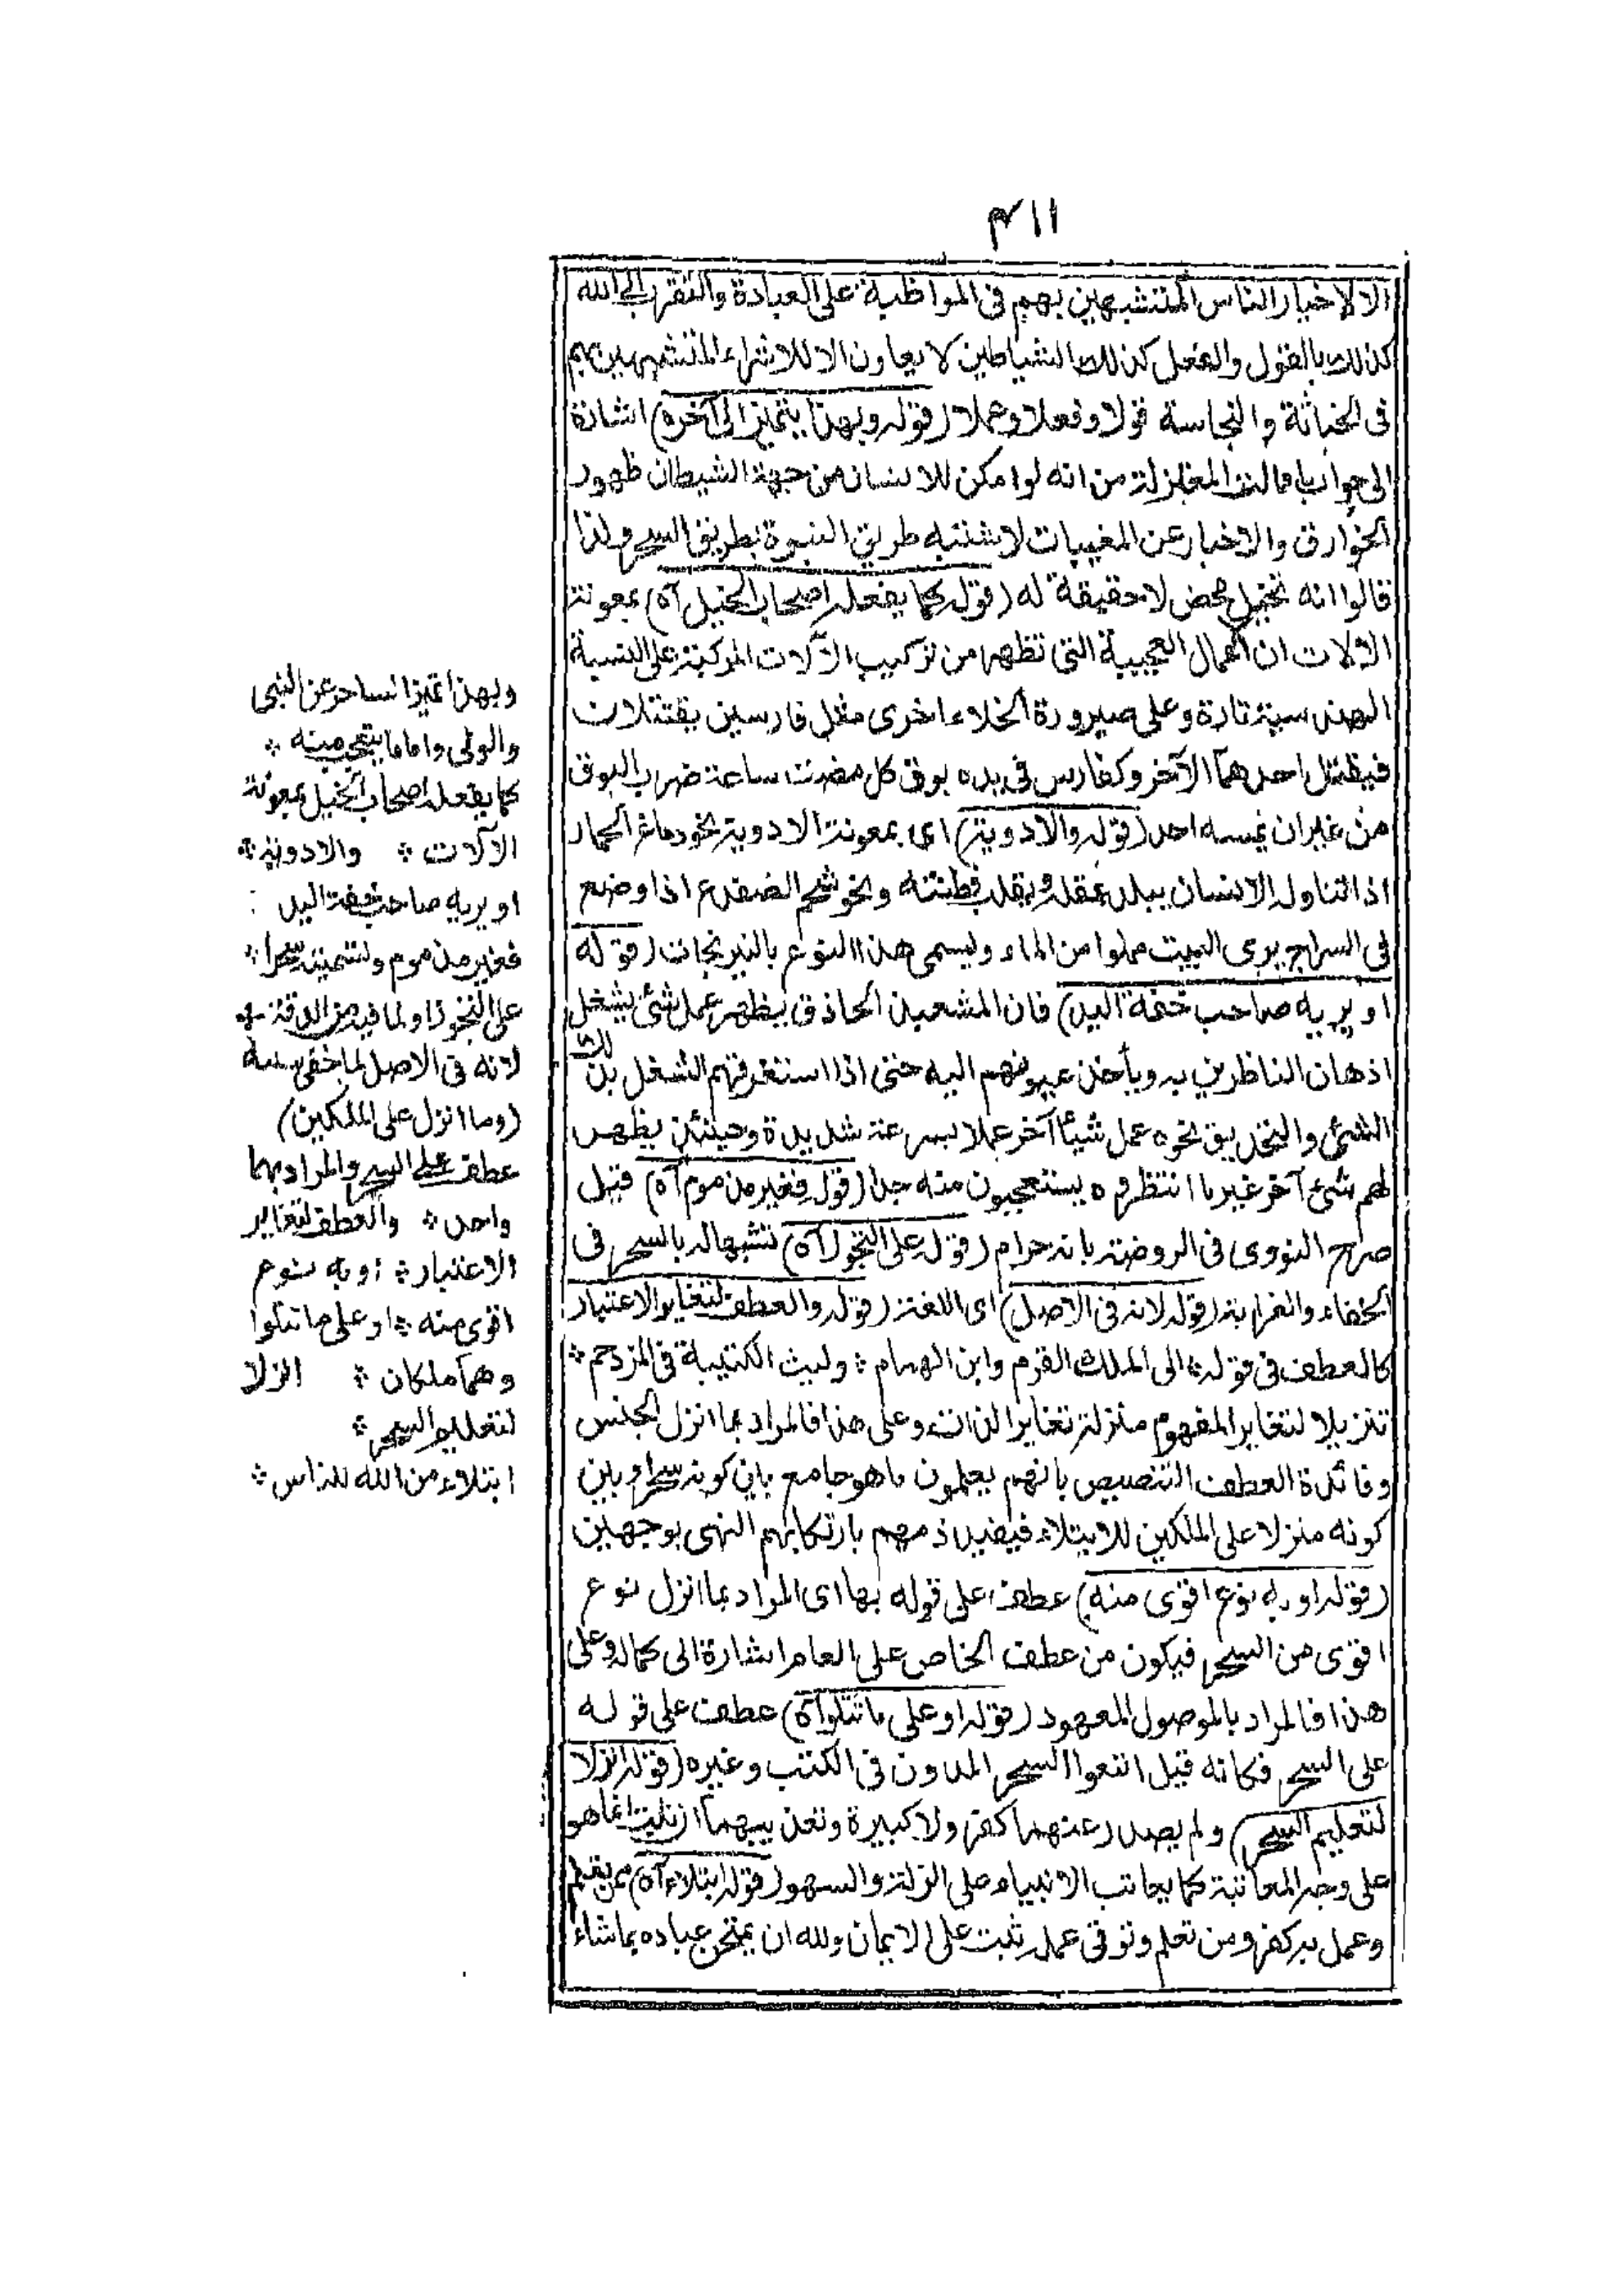 ٤١١
الا لاخيار الناس المتشبهين بهم فى المواظبة على العبادة والتقرب الى الله
كذلك بالقول والفعل كذلك الشياطين لا يعاون الا للاشراء المتشبهين بهم
فى الخباثة والنجاسة قولا وفعلا وعملا (قوله وبهذا يتميز الى آخره) اشارة
الى جواب ما قالته المعتزلة من انه لو امكن للانسان من جهة الشيطان ظهور
الخوارق والاخبار عن المغيبات لاشتبه طريق النبوة بطريق السحر ولذا
قالوا انه تخيل محض لا حقيقة له (قوله كما يفعله اصحاب الحيل آه) بمعونة
الآلات ان اعمال العجيبة التى تظهر من تركيب الآلات المركبة على النسبة
الهندسية تارة وعلى صيرورة الخلاء اخرى مثل فارسين يقتتلان
فيقتل احدهما الآخر وكفارس فى يده بوق كل مضت ساعة ضرب البوق
من غير ان يمسه احد (قوله والادوية) اى بمعونة الادوية نحو دماغ الحمار
اذا تناوله الانسان يبلد عقله ويقلب فطنته ونحو شحم الضفدع اذا وضع
فى السراج يرى البيت مملوا من الماء ويسمى هذا النوع بالنيرنجات (قوله
او يريه صاحب خفة اليد) فان المشعبذ الحاذق يظهر عمل شئ يشغل
اذهان الناظرين به ويأخذ عيونهم اليه حتى اذا استغرقهم الشغل بذلك
الشئ والتحديق نحوه عمل شيئا آخر عملا بسرعة شديدة وحينئذ يظهر
لهم شئ آخر غير ما انتظروه يستعجبون منه جدا (قوله فغير مذموم آه) قيل
صرح النووى فى الروضة بانه حرام (قوله على التجوز آه) تشبيها له بالسحر فى
الخفاء والغرابة (قوله لانه فى الاصل) اى اللغة (قوله والعطف لتغاير الاعتبار
كالعطف فى قوله ؞ الى الملك القرم وابن الهمام ؞ وليث الكتيبة فى المزدحم ؞
تنزيلا لتغاير المفهوم منزلة تغاير الذات وعلى هذا فالمراد بما انزل الجنس
وفائدة العطف التنصيص بانهم يعلمون ما هو جامع بين كونه سحرا وبين
كونه منزلا على الملكين للابتلاء فيفيد ذمهم بارتكابهم النهى بوجهين
(قوله او به نوع اقوى منه) عطف على قوله بها اى المراد بما انزل نوع
اقوى من السحر فيكون من عطف الخاص على العام اشارة الى كماله وعلى
هذا فالمراد بالموصول المعهود (قوله او على ما تتلوا آه) عطف على قوله
على السحر فكانه قيل اتبعوا السحر المدون فى الكتب وغيره (قوله انزلا
لتعليم السحر) ولم يصدر عنهما كفر ولا كبيرة وتعذيبهما انما هو
على وجه المعاتبة كما يعاتب الانبياء على الزلة والسهو (قوله ابتلاء آه)
وعمل به كفر ومن تعلم وتوقى عمله ثبت على الايمان ولله ان يمتحن عباده بما شاء
وبهذا تميز الساحر عن النبى
والولى واما ما يتعجب منه ؞
كما يفعله اصحاب الحيل بمعونة
الآلات ؞ والادوية ؞
او يريه صاحب خفة اليد :
فغير مذموم وتسميته سحرا ؞
على التجوز او لما فيه من الدقة ؞
لانه فى الاصل لما خفى سببه
(وما انزل على الملكين)
عطف على السحر والمراد بهما
واحد ؞ والعطف لتغاير
الاعتبار ؞ او به نوع
اقوى منه ؞ او على ما تتلوا
وهما ملكان ؞ انزلا
لتعليم السحر ؞
ابتلاء من الله للناس ؞